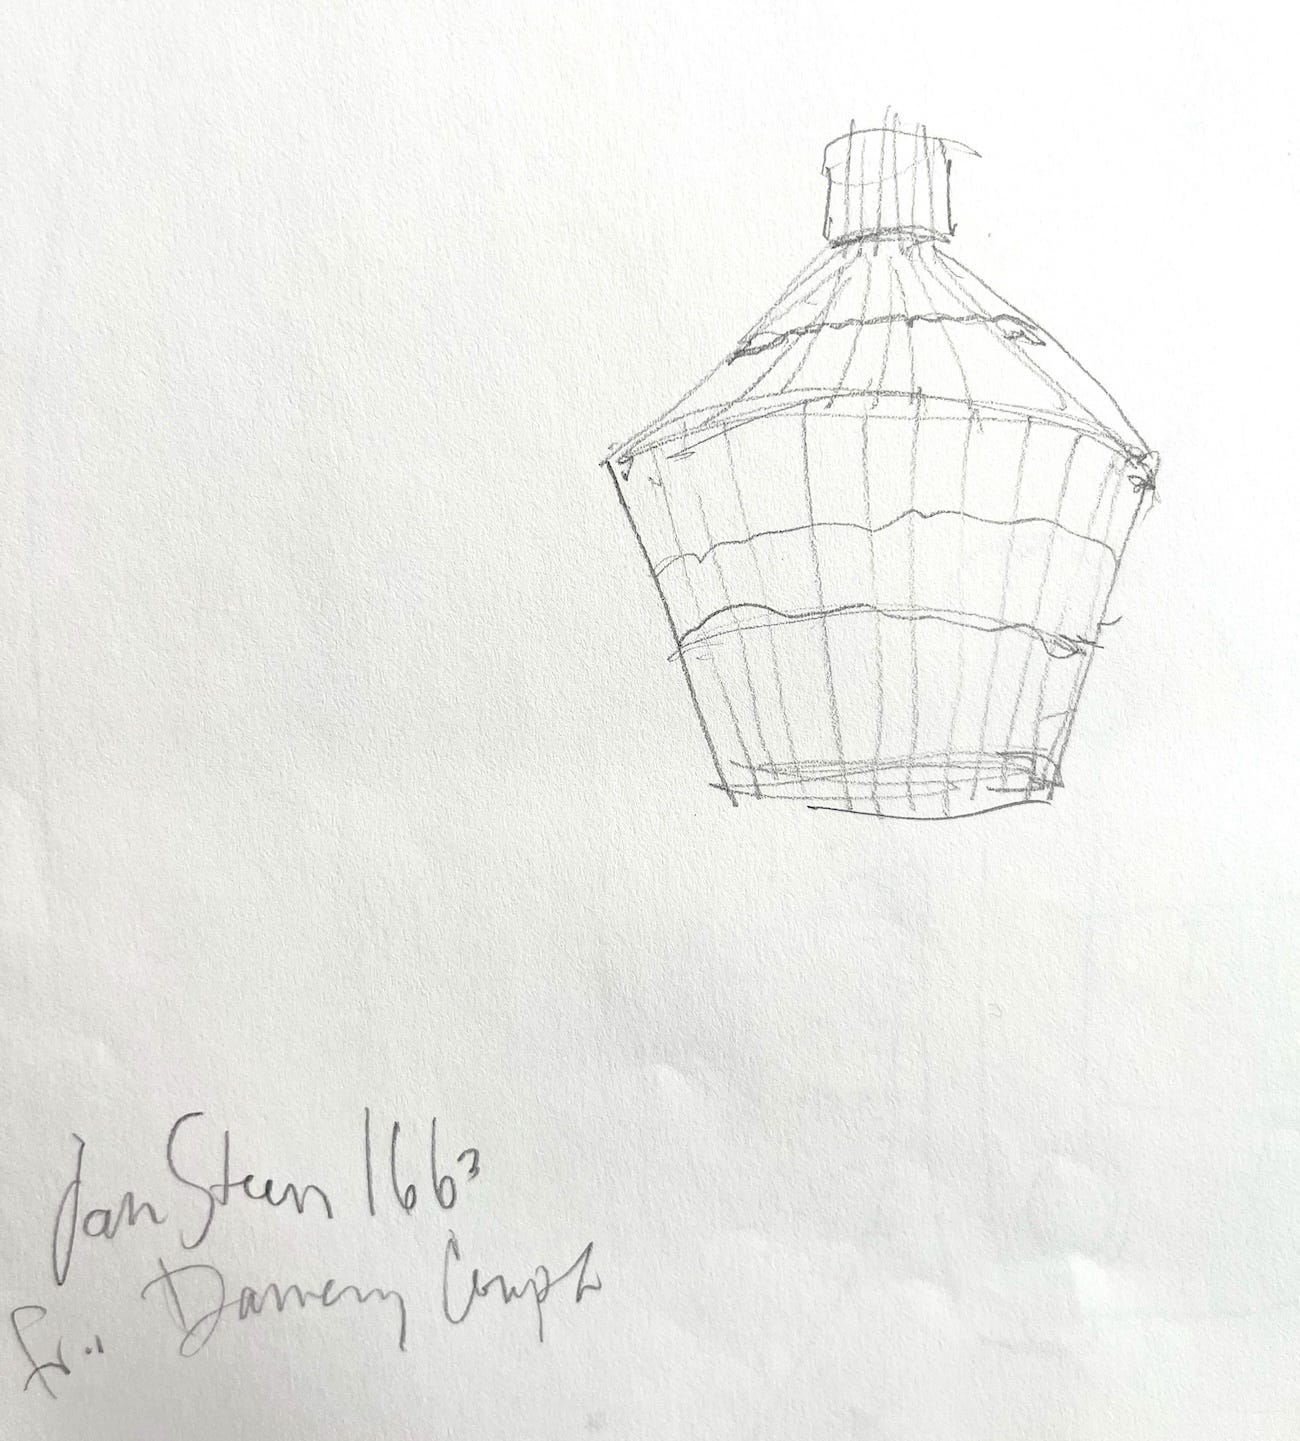 Jan Steen 1663
Dancing Couple